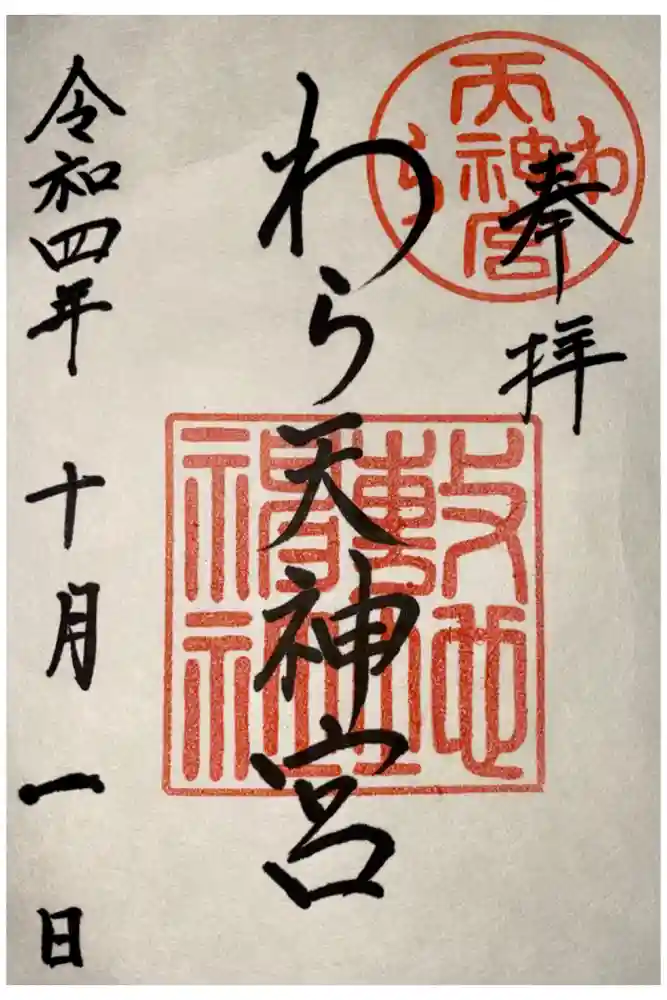 奉拝
わら
天神宮
わら天神宮
令和四年十月一日